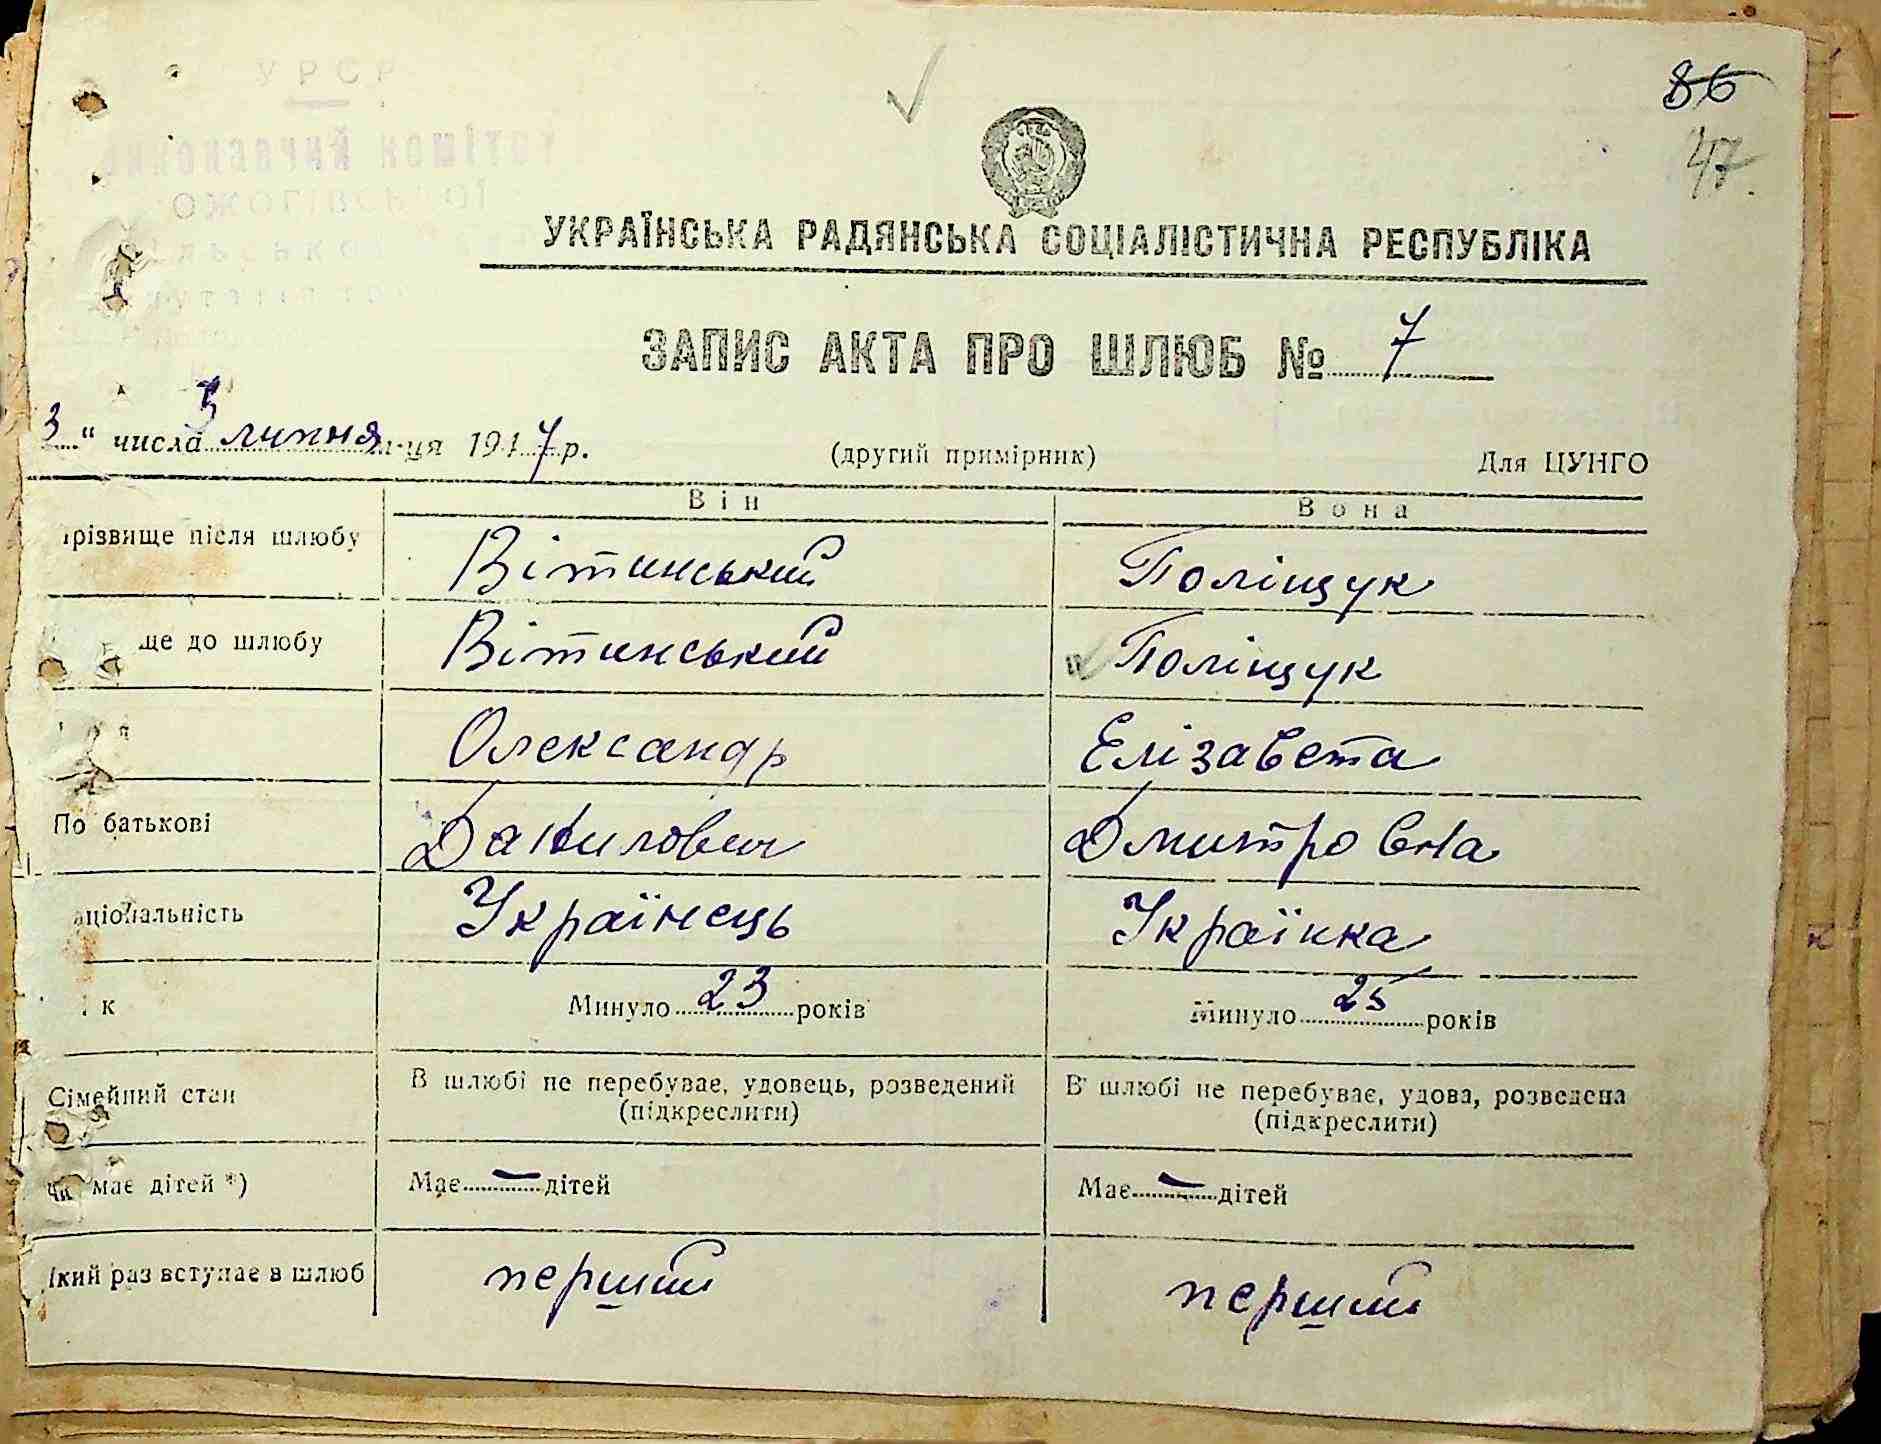 УРСР
виконавчий комітет
ОЖОГІВСЬКОЇ
86
47.
УКРАЇНСЬКА РАДЯНСЬКА СОЦІАЛІСТИЧНА РЕСПУБЛІКА
ЗАПИС АКТА ПРО ШЛЮБ № 7
3 " числа 3 липня м-ця 1947 р. (другий примірник) Для ЦУНГО
Він Вона
прізвище після шлюбу Вітинський Поліщук
ще до шлюбу Вітинський Поліщук
Олександр Елізавета
По батькові Данилович Дмитровна
аціональність Українець Українка
к Минуло 23 років Минуло 25 років
Сімейний стан В шлюбі не перебуває, удовець, розведений В шлюбі не перебуває, удова, розведена
(підкреслити) (підкреслити)
Чи має дітей *) Має — дітей Має — дітей
який раз вступає в шлюб перший перший